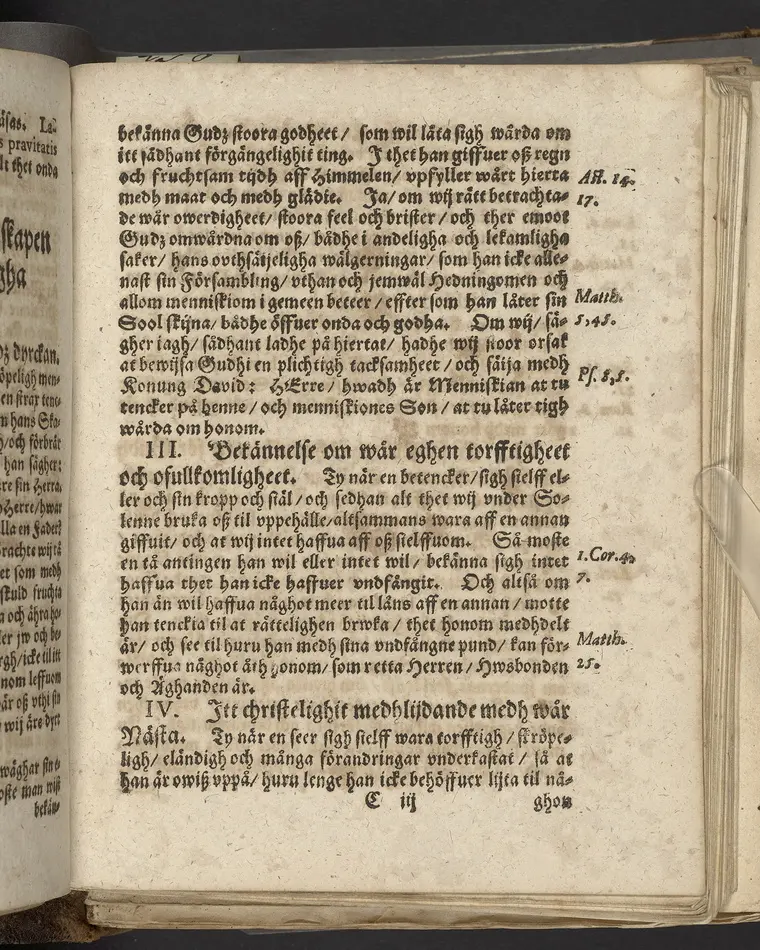 äsas. La-
s pravitatis
lt thet onda
skapen
gha
dz dyrckan.
öpeligh men-
n hans Ska-
/och förbrår
han sägher:
re sin Herra.
Herre/hwar
lla en Fader?
rachte wij tå
et som medh
skuld fruchta
och ähra ho-
er jw och be-
rgh/icke til itt
nom leffuom
är oß vthi sin
wij äre dyrt
wäghar sin e-
oste man wist
bekän-
bekänna Gudz stoora godheet / som wil låta sigh wårda om
itt sådhant förgängelighit ting. I thet han giffuer oß regn
och fruchtsam tijdh aff Himmelen/ vpfyller wårt hierta
medh maat och medh glädie. Ja/ om wij rätt betrachta-
de wår owerdigheet/ stoora feel och brister / och ther emoot
Gudz omwårdna om oß/ bådhe i andeligha och lekamligha
saker/ hans outhsäijeligha wälgerningar/ som han icke alle-
nast sin Försambling/ vthan och jemwäl Hedningomen och
allom menniskiom i gemeen beteer/ effter som han låter sin
Sool skijna/ bådhe öffuer onda och godha. Om wij/ sä-
gher iagh/ sådhant ladhe på hiertat/ hadhe wij stoor orsak
at bewijsa Gudhi en plichtigh tacksamheet / och säija medh
Konung David: HErre/ hwadh är Menniskian at tu
tencker på henne / och menniskiones Son / at tu låter tigh
wårda om honom.
III. Bekännelse om wår eghen torfftigheet
och ofullkomligheet. Ty när en betencker/sigh sielff el-
ler och sin kropp och siäl / och sedhan alt thet wij vnder So-
lenne bruka oß til vppehälle/altsammans wara aff en annan
giffuit/ och at wij intet haffua aff oß sielffuom. Så moste
en tå antingen han wil eller intet wil/ bekänna sigh intet
haffua thet han icke haffuer vndfångit. Och altså om
han än wil haffua någhot meer til låns aff en annan / motte
han tenckia til at rättelighen brwka / thet honom medhdelt
är/ och see til huru han medh sina vndfångne pund/ kan för-
werffua någhot åth honom/ som retta Herren/ Hwsbonden
och Äghanden är.
IV. Itt christelighit medhlijdande medh wår
Nästa. Ty när en seer sigh sielff wara torfftigh / skröpe-
ligh/ eländigh och många förandringar vnderkastat / så at
han är owiß vppå/ huru lenge han icke behöffuer lijta til nå-
C iij ghon
Act. 14.
17.
Matth.
5,45.
Ps. 8,5.
1. Cor. 4.
7.
Matth.
25.